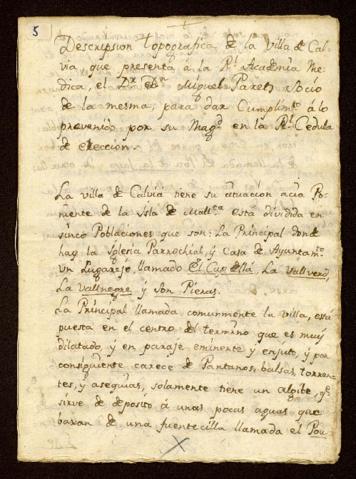 5
Descripsion topografica de la Villa de Cal-
via, que presenta à la Rl. Academia me-
dica, el Dr. Dn. Miguel Paret Socio
de la mesma, para dar Cumplimto. à lo
prevenido por su Magd. en la Rl. Cedula
de ereccion.
La villa de Calviá tiene su cituacion acia Po-
niente de la Isla de Mallca. està dividida en
sinco Poblaciones que son: La Principal donde
hay la Iglesia Parrochial, y Casa de Ayuntamto.
Un Lugarejo llamado El Cap della, La Vallverd,
La Vallnegre y Son Pieras.
La Principal llamada comunmente la villa, està
puesta en el centro del termino que es muy
dilatado, y en paraje eminente y enjuto, y por
consiguiente carece de Pantanos, balsas, torren-
tes, y asequias, solamente tiene un algibe qe.
sirve de deposito à unas pocas aguas que
baxan de una fuentecilla llamada el Pou